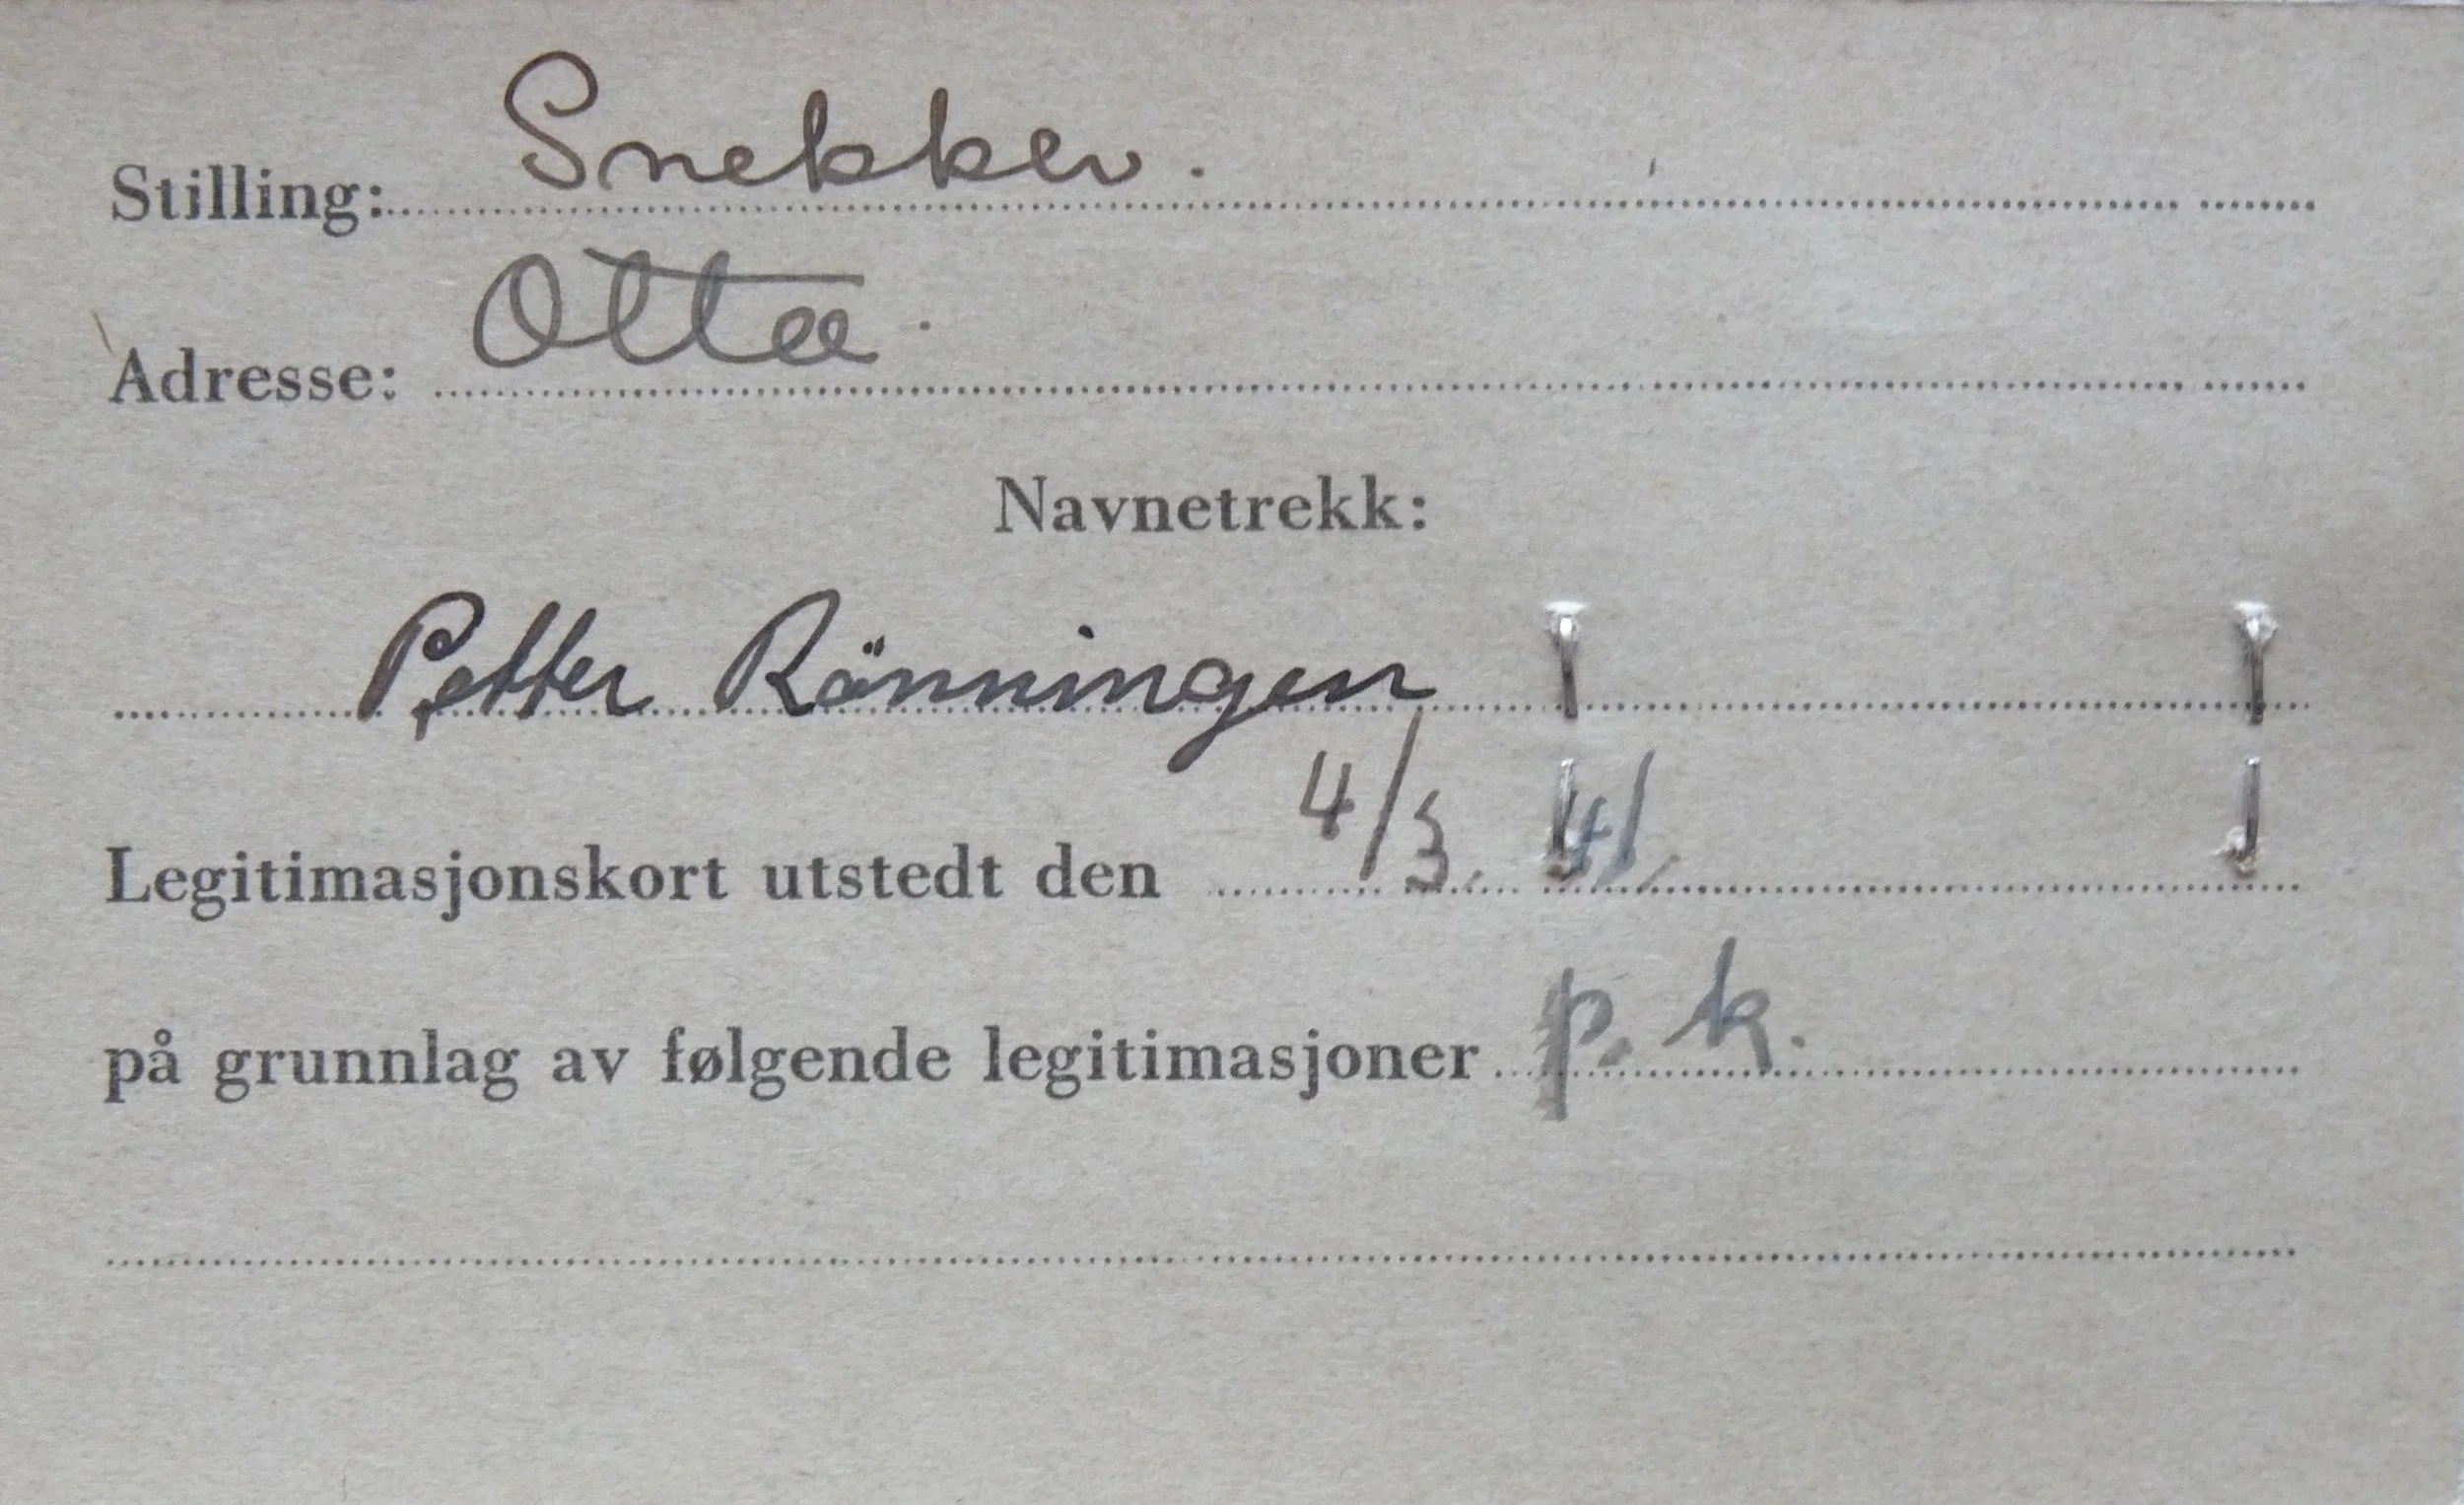 Stilling: Snekker.
Adresse: Otta.
Navnetrekk:
Petter Rönningen
Legitimasjonskort utstedt den 4/3. 41.
på grunnlag av følgende legitimasjoner p. k.